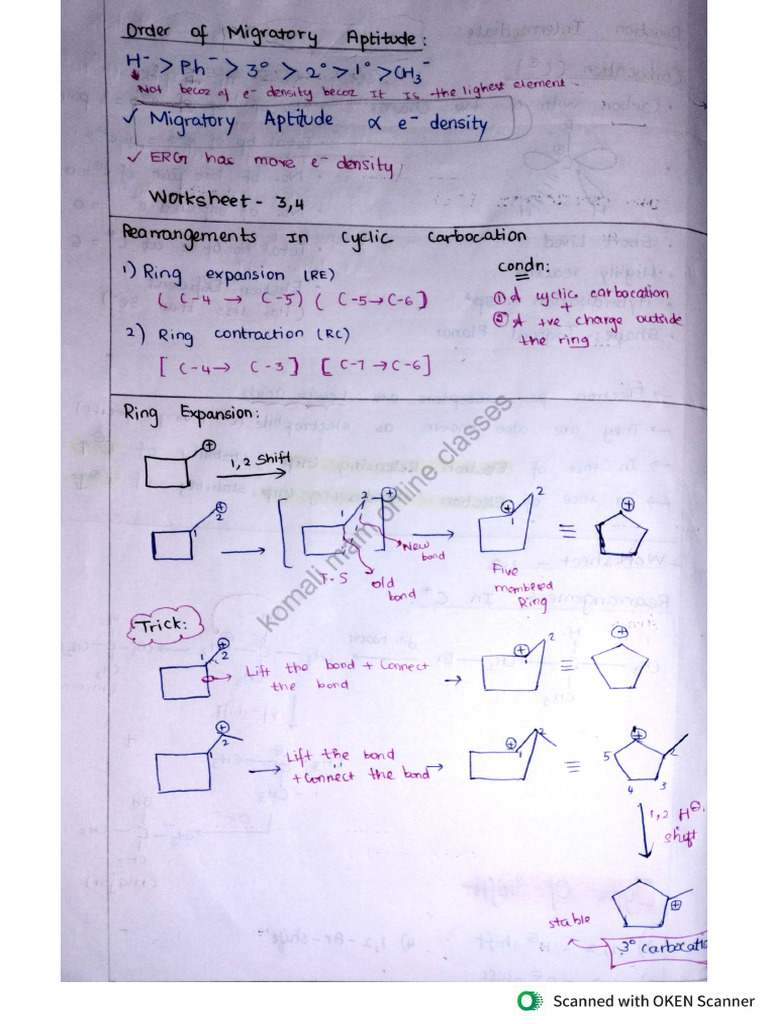 Order of Migratory Aptitude:
H⁻ > Ph⁻ > 3° > 2° > 1° > CH₃⁻
Not becoz of e⁻ density becoz It Is the highest element.
✓ Migratory Aptitude ∝ e⁻ density
✓ ERG has more e⁻ density
Worksheet - 3,4
Rearrangements In Cyclic Carbocation
1) Ring expansion (RE)
( C-4 → C-5) ( C-5→C-6)
2) Ring contraction (RC)
[ C-4→ C-3 ] [ C-7→C-6]
condn:
① A cyclic carbocation
+
② A +ve charge outside
the ring
Ring Expansion:
⊕
1,2 Shift
⊕
1
2
2
⊕
1
New
bond
T.S
old
bond
⊕
1
2
≡
⊕
Five
membered
Ring
Trick:
⊕
1
2
Lift the bond + Connect
the bond
⊕
1
2
≡
⊕
⊕
2
1
Lift the bond
+ Connect the bond
⊕
1
2
≡
⊕
1
5
2
4
3
1,2 H⊖
shift
⊕
stable
3° carbocatio
komali mam online classes
Scanned with OKEN Scanner